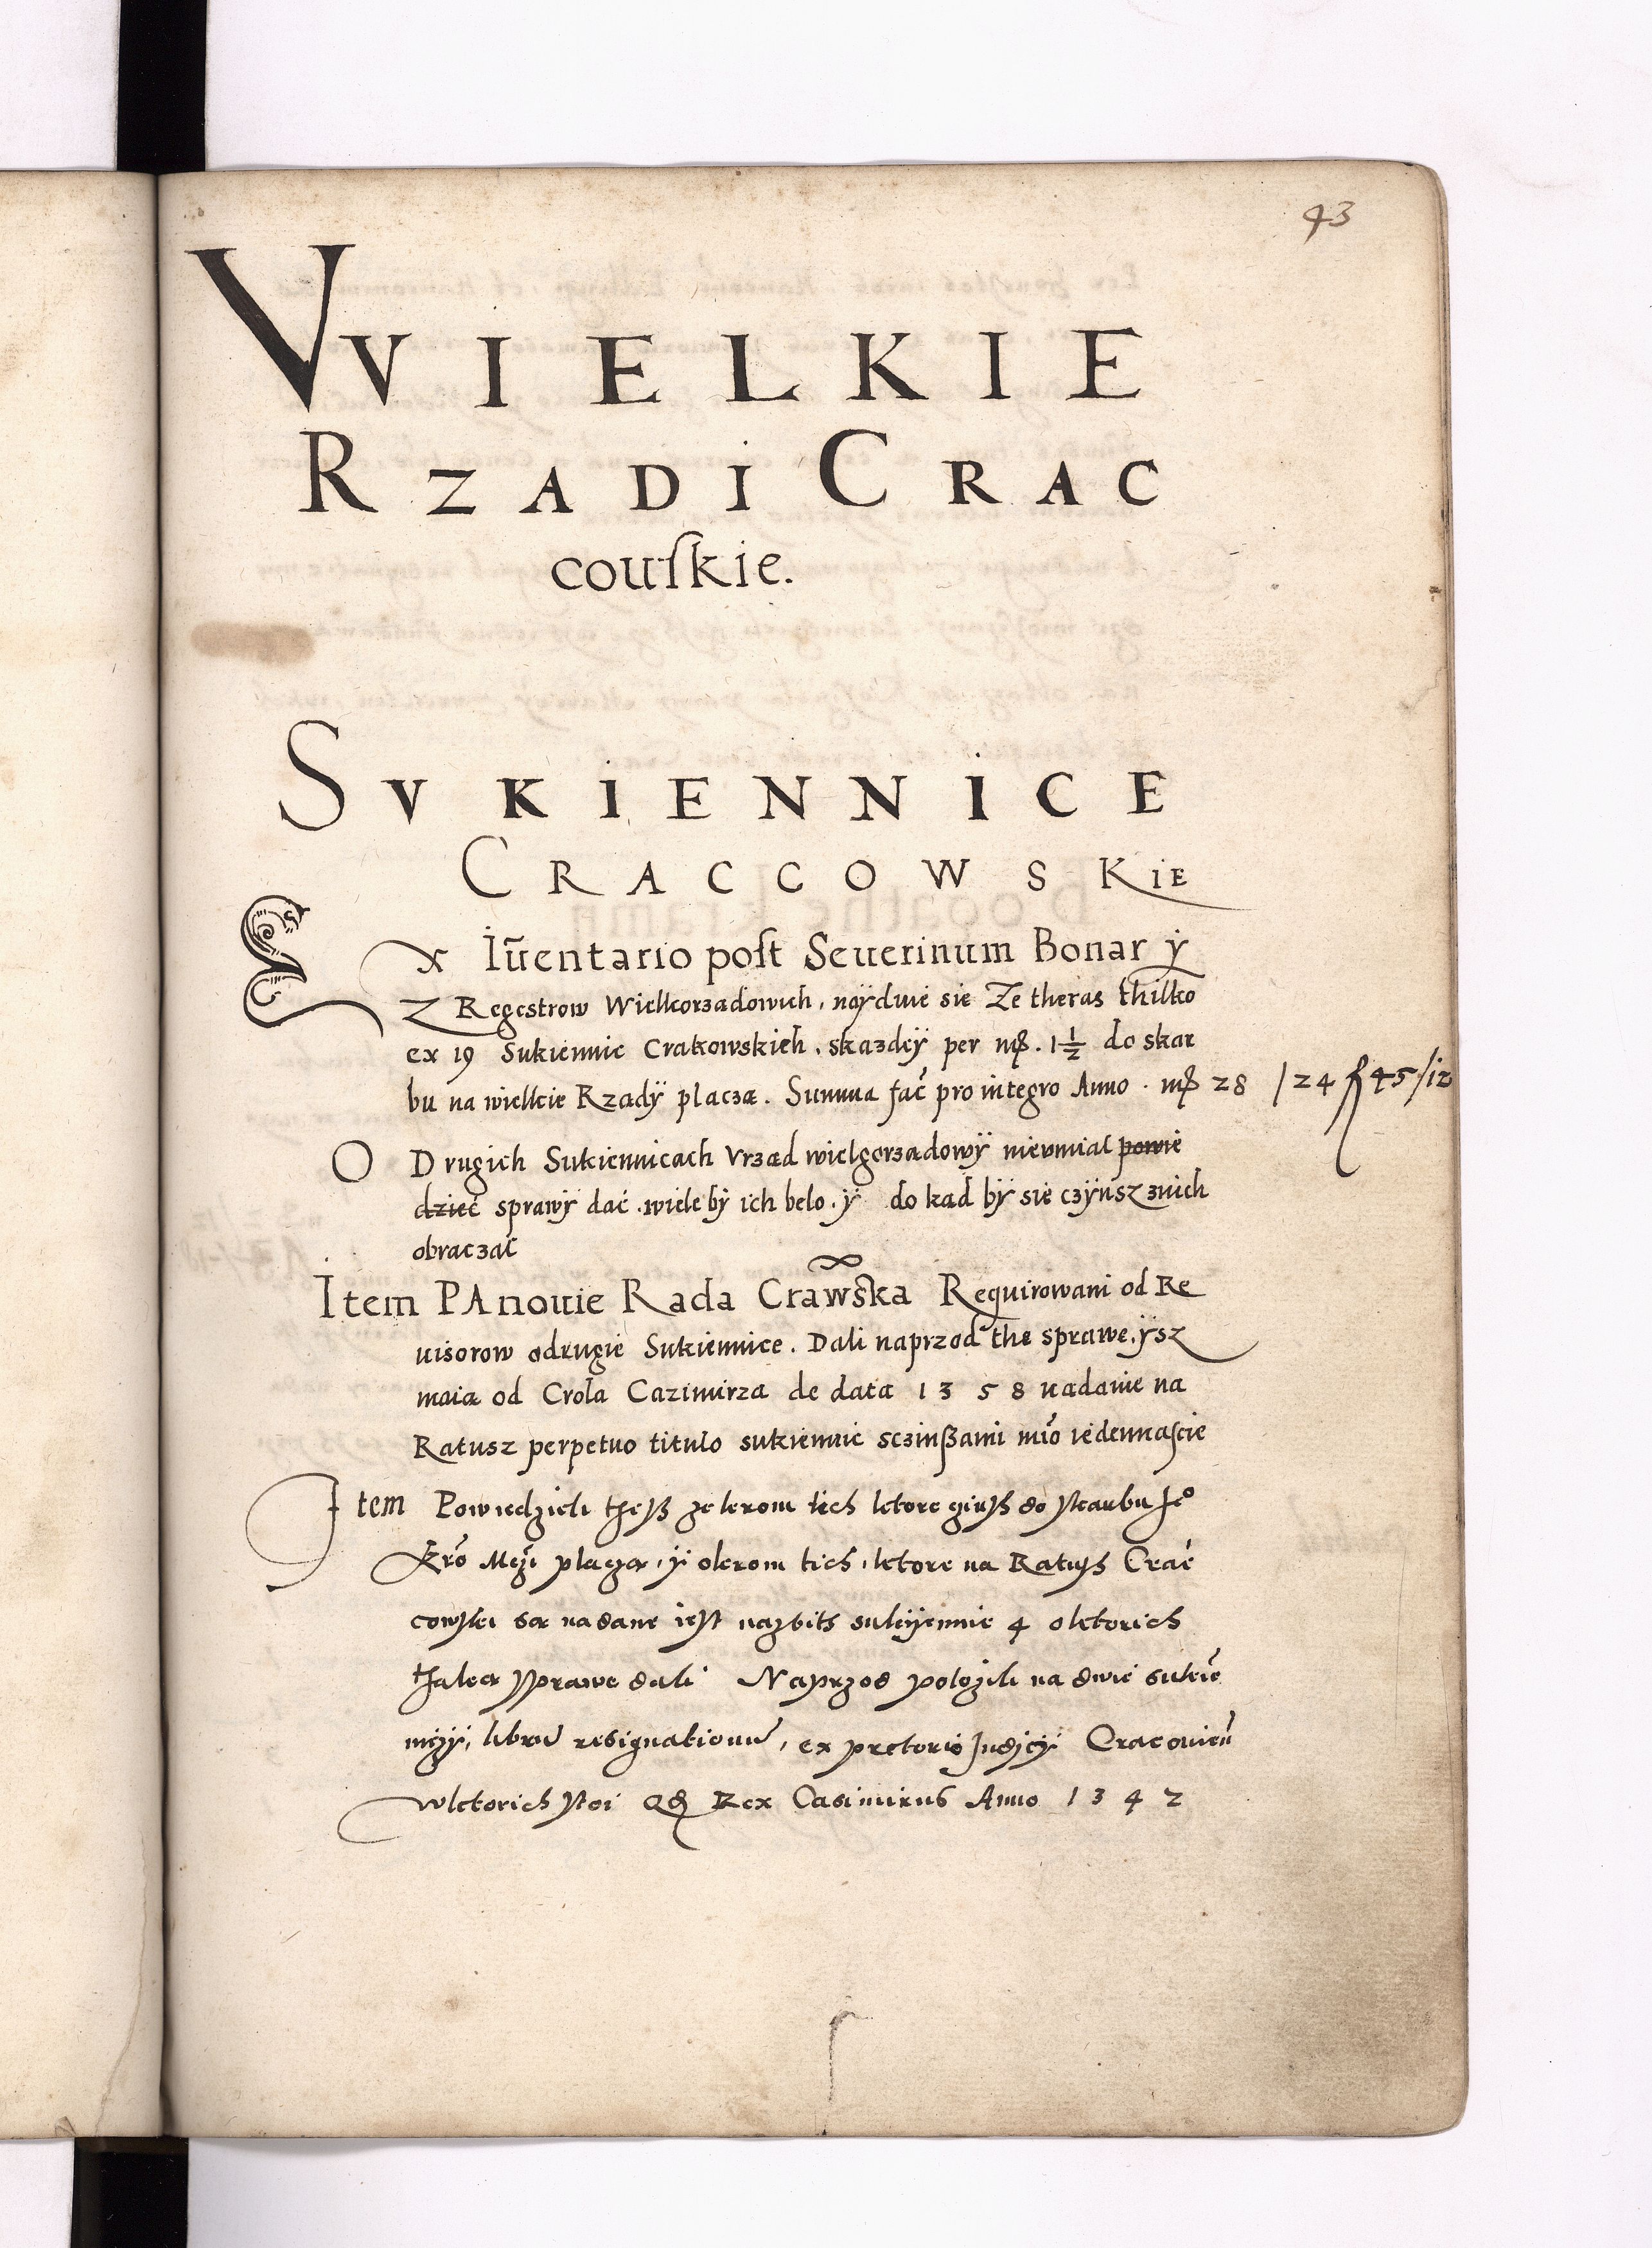 43
VVIELKIE
RZADI CRAC
couſkie.
SVKIENNICE
CRACCOWSKIE
Ex Iūentario poſt Seuerinum Bonar ÿ
Z Regestrow Wielkorzadowich, naÿdwie sie Ze theras thilko
ex 19 Sukiennic Crakowskich, skazdeÿ per mꝶ. 1 1/2 do skar
bu na wielkie Rzadÿ placzą. Summa fac̄ pro integro Anno . mꝶ 28 /24 ẞ 45/12
O Drugich Sukiennicach Vrząd wielgorządowÿ nieumiał powie
dzieć sprawÿ dać . wiele bÿ ich belo . ÿ do kąd bÿ sie czÿnsz znich
obraczał
Item PAnouie Rada Crawſka Requirowani od Re
uisorow odrugie Sukiennice . Dali naprzod the sprawe, ÿsz
maią od Crola Cazimirza de data 1358 nadanie na
Ratusz perpetuo titulo sukiennic sczinßami mi̇o iedennaſcie
Item Powiedzieli theſß ze krom tich ktore giuſß do ſkarbu Je°
Kro̅ Mczi placzą, ÿ okrom tich, ktore na Ratuſß Crac̄
cowſki są nadane ieſt nazbitß sukÿennic 4 oktorich
thaką ſprawe dali Naprzod położili na dwie sukie̅
niczÿ, libru̅ resignationu̅, ex pretorio Judicÿ Cracouien̄
wktorich ſtoi Qđ Rex Casimirus Anno 1342